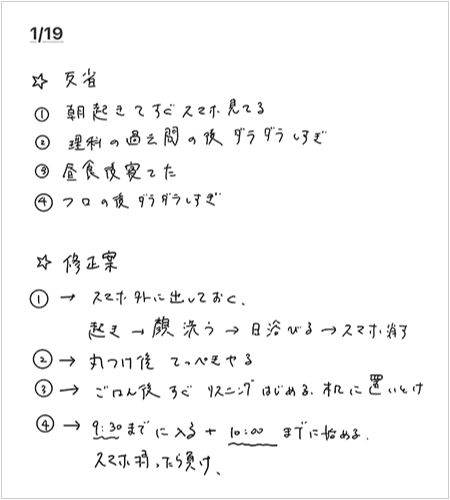 1/19
☆ 反省
① 朝起きてすぐスマホ見てる
② 理科の過去問の後 ダラダラしすぎ
③ 昼食後寝てた
④ フロの後 ダラダラしすぎ
☆ 修正案
① → スマホ外に出しておく、
起き → 顔洗う → 日浴びる → スマホ消す
② → 丸つけ後 てっぺきやる
③ → ごはん後 すぐ リスニングはじめる、机に置いとけ
④ → 9:30までに入る + 10:00 までに始める、
スマホ触ったら負け、